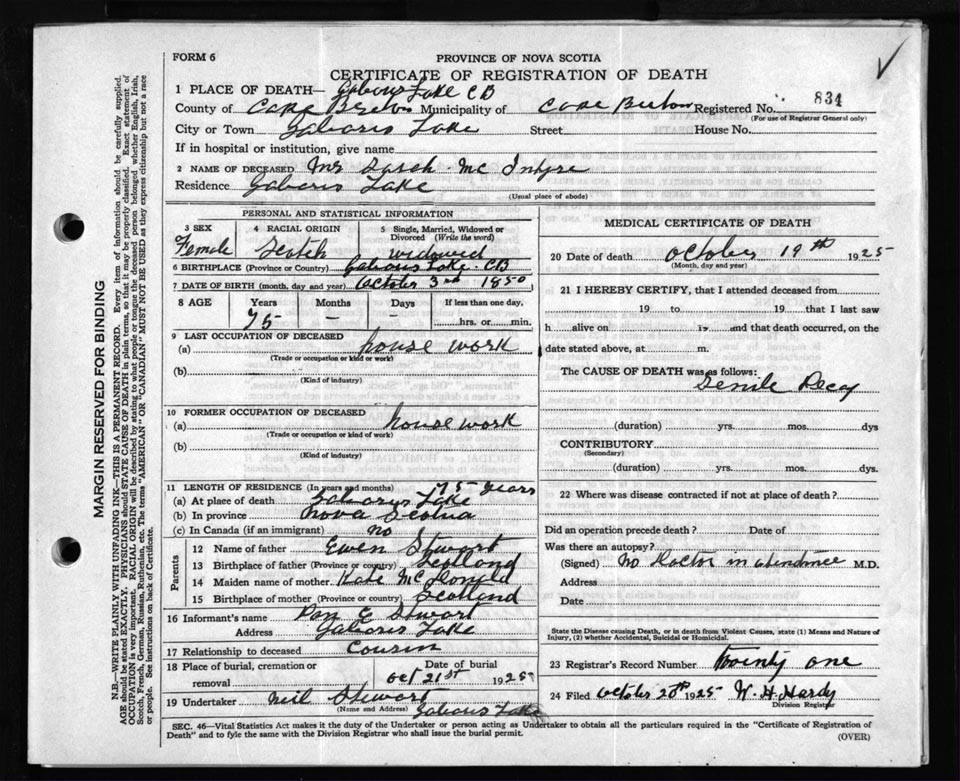 FORM 6
PROVINCE OF NOVA SCOTIA
CERTIFICATE OF REGISTRATION OF DEATH
1 PLACE OF DEATH— Gabarus Lake CB
County of Cape Breton Municipality of Cape Breton Registered No. 834
(For use of Registrar General only)
City or Town Gabarus Lake Street House No.
If in hospital or institution, give name
2 NAME OF DECEASED Mrs Sarah Mc Intyre
Residence Gabarus Lake
(Usual place of abode)
PERSONAL AND STATISTICAL INFORMATION
3 SEX 4 RACIAL ORIGIN 5 Single, Married, Widowed or Divorced (Write the word)
Female Scotch widowed
6 BIRTHPLACE (Province or Country) Gabarus Lake CB
7 DATE OF BIRTH (month, day and year) October 3rd 1850
8 AGE Years Months Days If less than one day,
75 — — hrs. or min.
9 LAST OCCUPATION OF DECEASED
(a) house work
(Trade or occupation or kind of work)
(b)
(Kind of industry)
10 FORMER OCCUPATION OF DECEASED
(a) house work
(Trade or occupation or kind of work)
(b)
(Kind of industry)
11 LENGTH OF RESIDENCE (In years and months) 75 years
(a) At place of death Gabarus Lake
(b) In province Nova Scotia
(c) In Canada (if an immigrant) No
Parents
12 Name of father Ewen Stewart
13 Birthplace of father (Province or country) Scotland
14 Maiden name of mother Kate McDonald
15 Birthplace of mother (Province or country) Scotland
16 Informant's name Dan E Stewart
Address Gabarus Lake
17 Relationship to deceased Cousin
18 Place of burial, cremation or removal Date of burial
Oct 21st 1925
19 Undertaker Neil Stewart
(Name and Address) Gabarus Lake
MEDICAL CERTIFICATE OF DEATH
20 Date of death October 19th 1925
(Month, day and year)
21 I HEREBY CERTIFY, that I attended deceased from
19 to 19 that I last saw
h alive on 19 and that death occurred, on the
date stated above, at m.
The CAUSE OF DEATH was as follows:
Senile Decay
(duration) yrs. mos. dys
CONTRIBUTORY
(Secondary)
(duration) yrs. mos. dys.
22 Where was disease contracted if not at place of death?
Did an operation precede death? Date of
Was there an autopsy?
(Signed) No Doctor in attendance M.D.
Address
Date
State the Disease causing Death, or in death from Violent Causes, state (1) Means and Nature of
Injury, (2) whether Accidental, Suicidal or Homicidal.
23 Registrar's Record Number Twenty one
24 Filed October 20th 1925 W. H. Hardy
Division Registrar
SEC. 46—Vital Statistics Act makes it the duty of the Undertaker or person acting as Undertaker to obtain all the particulars required in the "Certificate of Registration of
Death" and to fyle the same with the Division Registrar who shall issue the burial permit.
(OVER)
MARGIN RESERVED FOR BINDING
N.B.—WRITE PLAINLY WITH UNFADING INK—THIS IS A PERMANENT RECORD. Every item of information should be carefully supplied.
AGE should be stated EXACTLY. PHYSICIANS should STATE CAUSE OF DEATH in plain terms, so that it may be properly classified. Exact statement of
OCCUPATION is very important. RACIAL ORIGIN will be described by stating to what people or tongue the deceased person belonged whether English, Irish,
Scotch, French, German, Russian, Ruthenian, etc. The terms "AMERICAN" OR "CANADIAN" MUST NOT BE USED as they express citizenship but not a race
or people. See instructions on back of Certificate.